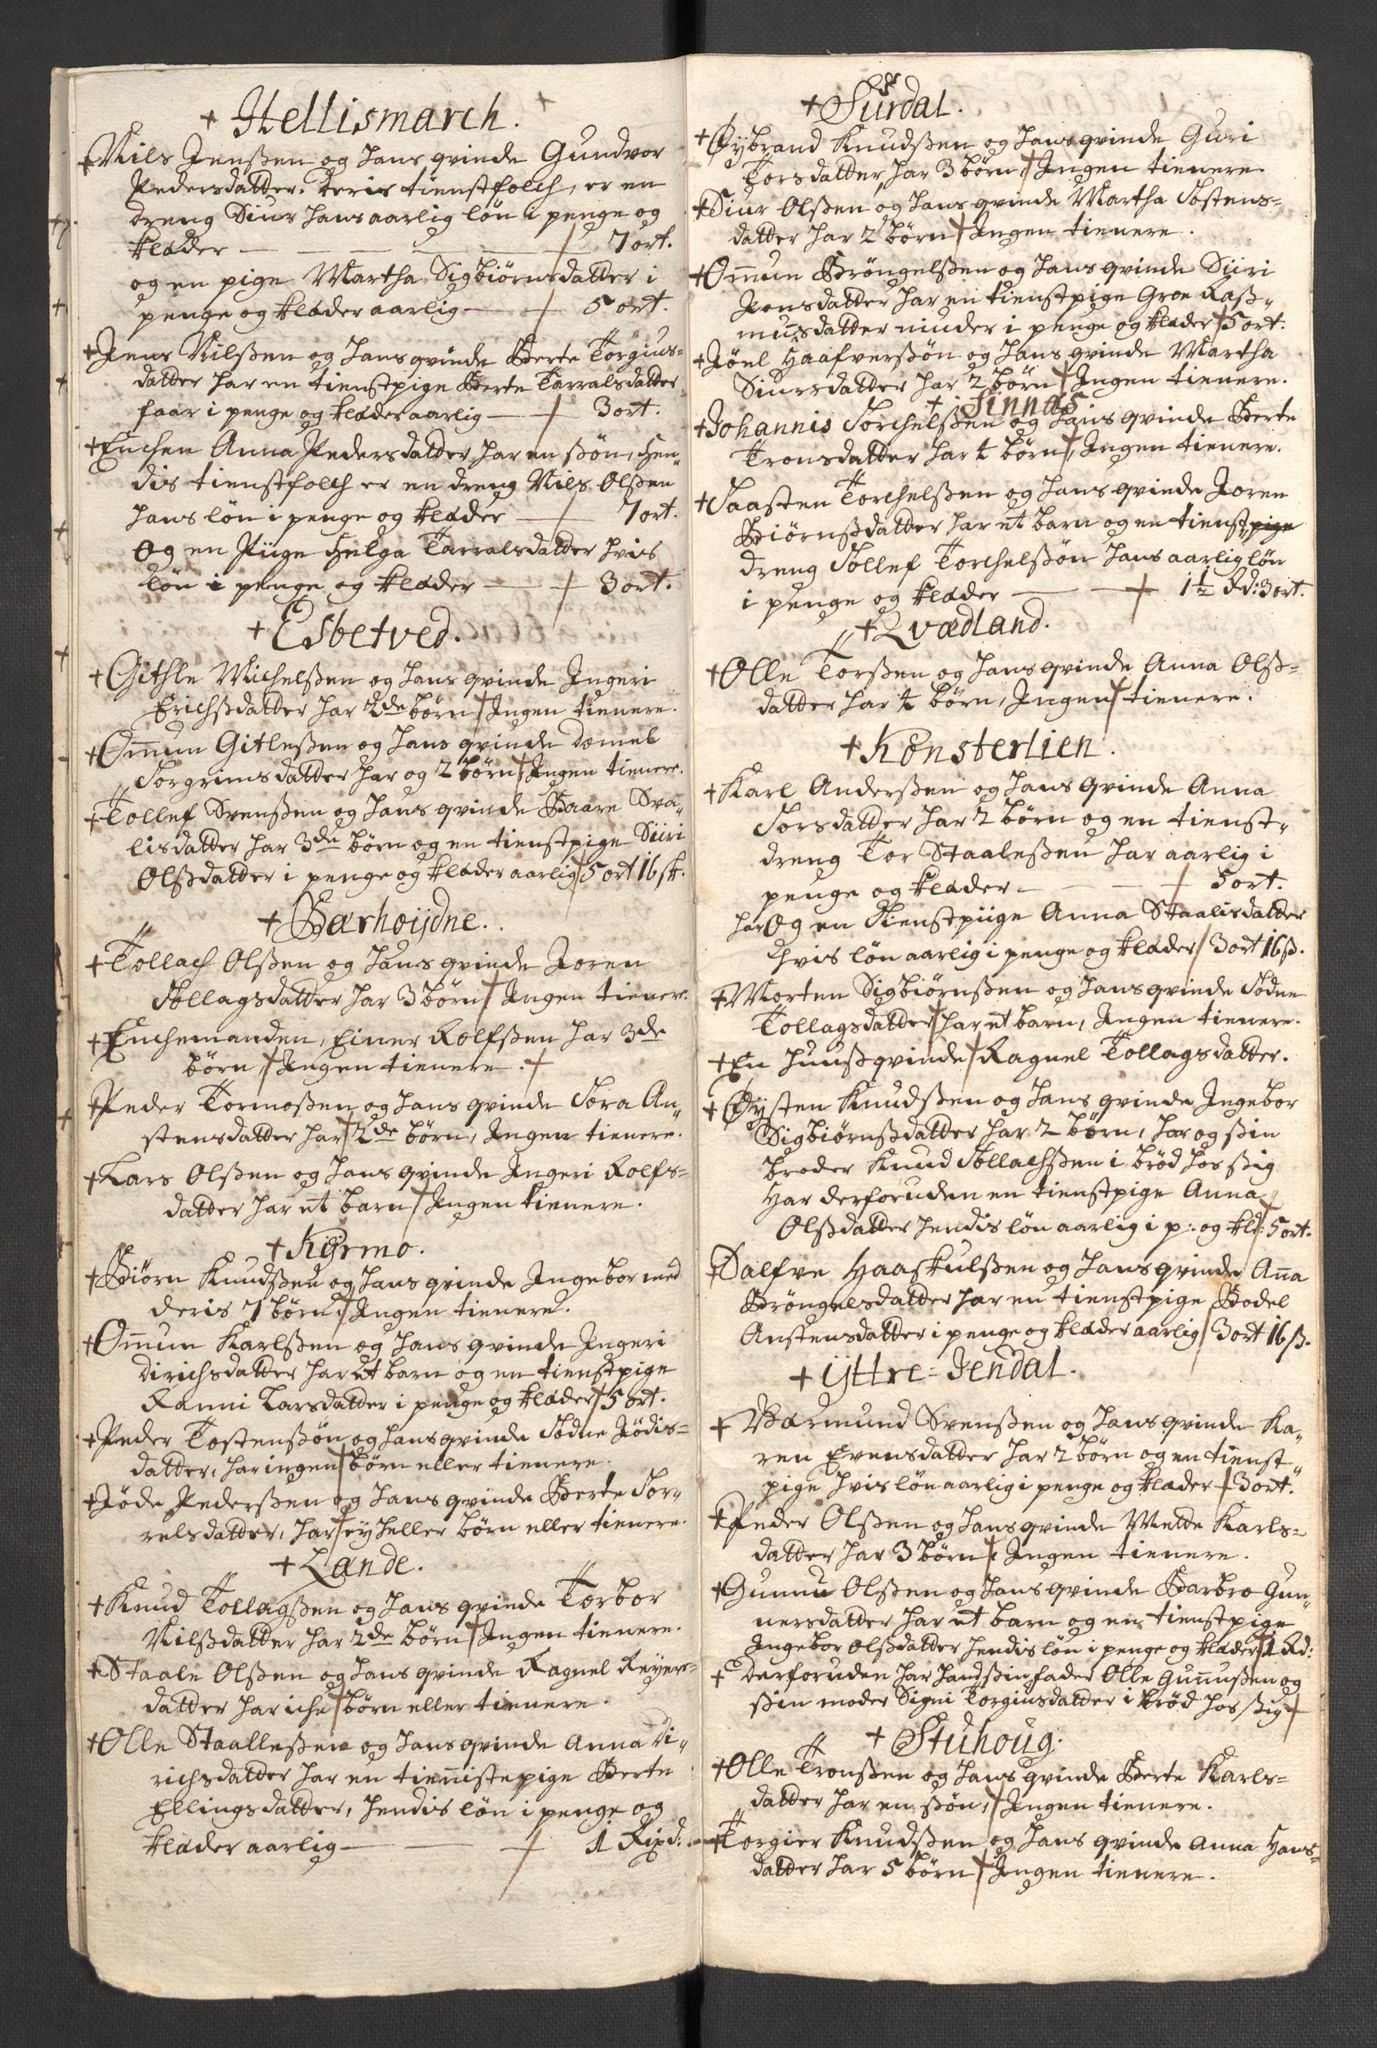 + Hellismarch.
+ Nils Jenssen og hans qvinde Gundvor
Pedersdatter. deris tienstfolch, er en
dreng Siur hans aarlig løn i penge og
klæder — 7 ort.
og en pige Martha Sigbiørnsdatter i
penge og klæder aarlig — 5 ort.
+ Jens Nilssen og hans qvinde Berte Torgius-
datter har en tienstpige Berte Tarralsdatter
faar i penge og klæder aarlig — 3 ort.
+ Enchen Anna Pedersdatter har en søn, hen-
dis tienstfolch er en dreng Nils Olssen
hans løn i penge og klæder — 7 ort.
Og en Piige Helga Tarralsdatter hvis
løn i penge og klæder — 3 ort.
+ Esbetved.
+ Githle Michelssen og hans qvinde Ingeri
Erichsdatter har 2de børn, Ingen tienere.
+ Omun Gitlessen og hans qvinde Dæmel
Torgrimsdatter har og 2 børn Ingen tienere.
+ Tollef Svenssen og hans qvinde Baare Sva-
lisdatter har 3de børn og en tienstpige Siiri
Olssdatter i penge og klæder aarlig 5 ort 16 sk.
+ Bærhoijdne.
+ Tollach Olssen og hans qvinde Joren
Tollagsdatter har 3 børn, Ingen tienere.
+ Enchemanden, Einer Rolfssen har 3de
børn, Ingen tienere. +
+ Peder Tormossen og hans qvinde Tora An-
stensdatter har 2de børn, Ingen tienere.
+ Lars Olssen og hans qvinde Ingeri Rolfs-
datter har et barn, Ingen tienere.
+ Kyrmo.
+ Biørn Knudssen og hans qvinde Ingebor med
deris 7 børn. Ingen tienere.
+ Omun Karlssen og hans qvinde Ingeri
Dirichsdatter har et barn og en tienstpige
Ranni Larsdatter i penge og klæder 5 ort.
+ Peder Tostenssøn og hans qvinde Todne Jødis-
datter, har ingen børn eller tienere.
+ Jøde Pederssen og hans qvinde Berte Tor-
relsdatter, har ey heller børn eller tienere.
+ Lande.
+ Knud Tollagssen og hans qvinde Torbor
Nilssdatter har 2de børn, Ingen tienere.
+ Staale Olssen og hans qvinde Ragnel Reyers-
datter har iche børn eller tienere.
+ Olle Staallessen og hans qvinde Anna Di-
richsdatter har en tiennistepige Berte
Ellingsdatter, hendis løn i penge og
klæder aarlig — 1 Rixd:
+ Surdal.
+ Øybrand Knudssen og hans qvinde Guri
Torsdatter har 3 børn, Ingen tienere.
+ Siur Olssen og hans qvinde Martha Tostens-
datter har 2 børn Ingen tienere.
+ Omun Brøngelssen og hans qvinde Siiri
Ponsdatter har en tienstpige Groe Rass-
musdatter niuder i penge og klæder 5 ort.
+ Jøel Haafverssøn og hans qvinde Martha
Siursdatter har 2 børn, Ingen tienere.
+ Sinnas
+ Johannis Torchelssen og hans qvinde Berte
Tronsdatter har 4 børn, Ingen tienere.
+ Taasten Torchelssen og hans qvinde Joren
Biørnssdatter har et barn og en tienstpige
dreng Tollef Torchelssøn hans aarlig løn
i penge og klæder — 1½ Rd: 3 ort.
+ Qvædland.
+ Olle Torssen og hans qvinde Anna Olss-
datter har 4 børn, Ingen tienere.
+ Kønsterlien.
+ Karl Anderssen og hans qvinde Anna
Torsdatter har 2 børn og en tienst-
dreng Tor Staalessen har aarlig i
penge og klæder — 5 ort.
har Og en Tienstpiige Anna Staalisdatter
hvis løn aarlig i penge og klæder 3 ort 16 ß.
+ Morten Sigbiørnssen og hans qvinde Todne
Tollagsdatter har et barn, Ingen tienere.
+ En huussqvinde Ragnel Tollagsdatter.
+ Øysten Knudssen og hans qvinde Ingebor
Sigbiørnssdatter har 2 børn, har og ssin
broder Knud Tollachssen i brød hos ssig
Har derforuden en tienstpige Anna
Olssdatter hendis løn aarlig i p: og kl: 5 ort.
+ Dalfve Haaskulssen og hans qvinde Anna
Brøngelsdatter har en tienstpige Bodel
Anstensdatter i penge og klæder aarlig 3 ort 16 ß.
+ Yttre-Jendal.
+ Værmund Svenssen og hans qvinde Ka-
ren Evensdatter har 2 børn og en tienst-
pige hvis løn aarlig i penge og klæder 3 ort.
+ Peder Olssen og hans qvinde Mette Karls-
datter har 3 børn, Ingen tienere.
+ Gunnu Olssen og hans qvinde Barbro Gun-
nersdatter har et barn og en tienstpige
Ingebor Olssdatter hendis løn i penge og klæder 1 Rd:
+ Derforuden har hand ssin fader Olle Gunnussen og
ssin moder Signi Torgiusdatter i brød hos ssig +
+ Stuhoug.
+ Olle Tronssen og hans qvinde Berte Karls-
datter har en ssøn, Ingen tienere.
+ Torgier Knudssen og hans qvinde Anna Hans-
datter har 5 børn, Ingen tienere.